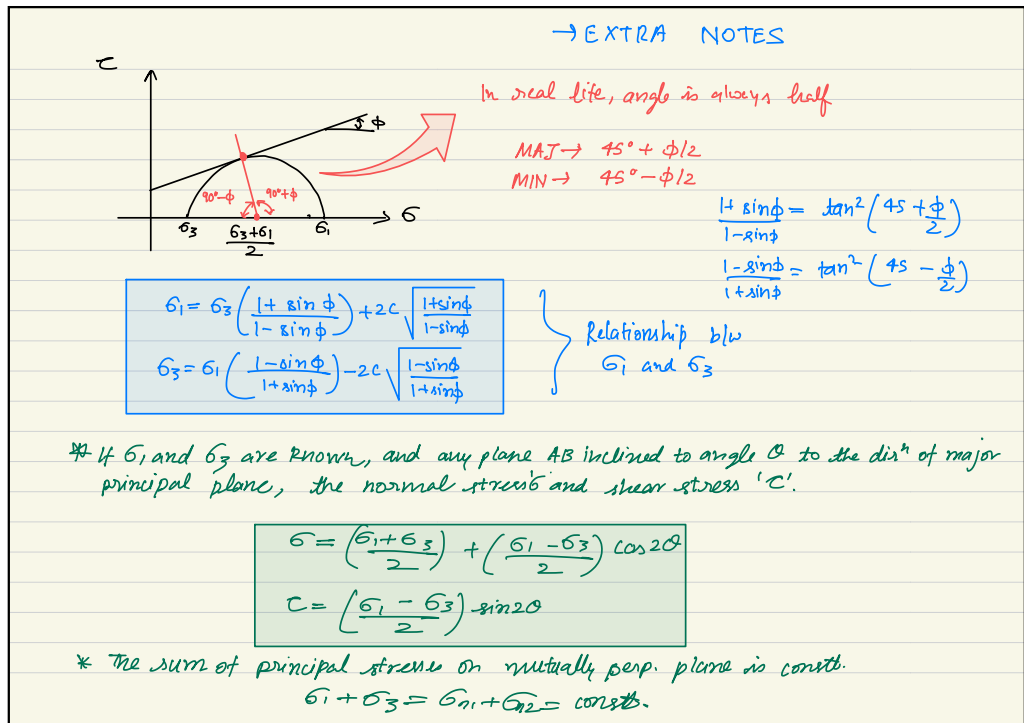 → EXTRA NOTES
τ
ϕ
In real life, angle is always half
MAJ → 45° + ϕ/2
MIN → 45° - ϕ/2
90°-ϕ 90°+ϕ
σ3 (σ3+σ1)/2 σ1 σ
(1+ sinϕ)/(1-sinϕ) = tan² (45 + ϕ/2)
(1-sinϕ)/(1+sinϕ) = tan² (45 - ϕ/2)
σ1 = σ3 ((1+ sin ϕ)/(1- sin ϕ)) + 2c √((1+sinϕ)/(1-sinϕ))
σ3 = σ1 ((1-sinϕ)/(1+sinϕ)) - 2c √((1-sinϕ)/(1+sinϕ))
Relationship b/w
σ1 and σ3
* If σ1 and σ3 are known, and any plane AB inclined to angle θ to the dirⁿ of major
principal plane, the normal stress σ and shear stress 'τ'.
σ = ((σ1+σ3)/2) + ((σ1-σ3)/2) cos2θ
τ = ((σ1 - σ3)/2) sin2θ
* The sum of principal stresses on mutually perp. plane is constt.
σ1 + σ3 = σn1 + σn2 = constt.